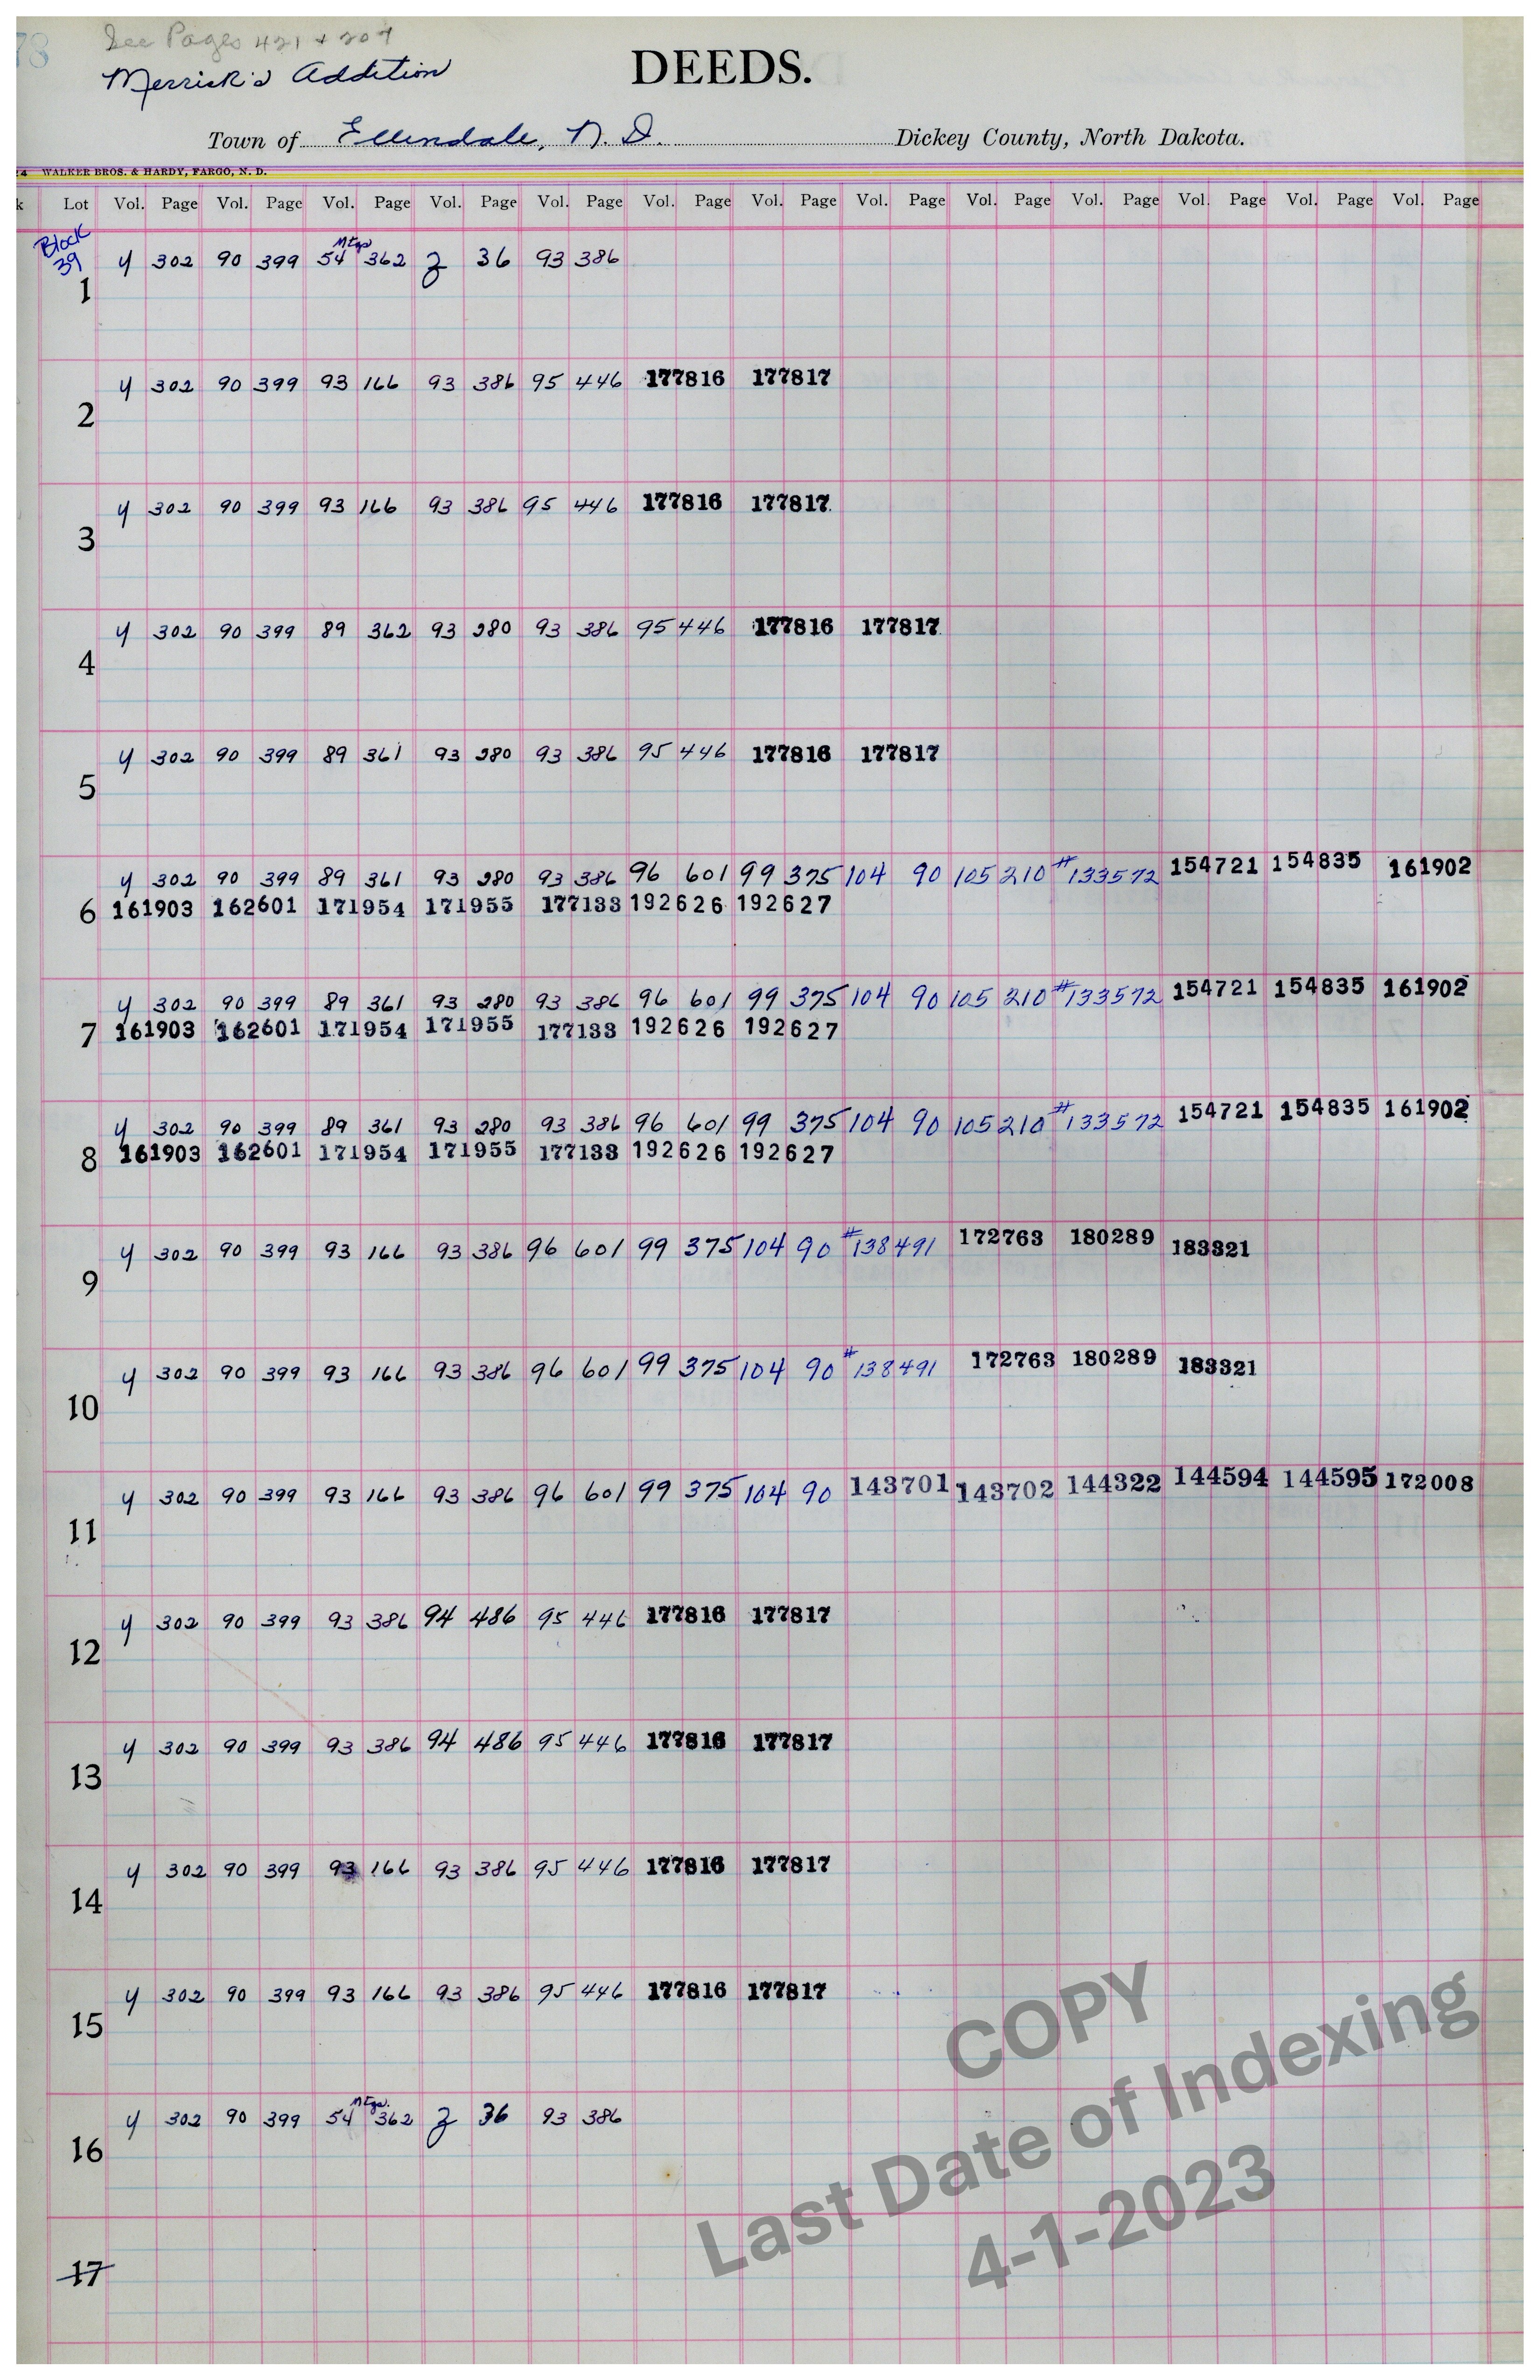 78 See Pages 421 & 207
Merrick's Addition DEEDS.
Town of Ellendale, N. D. Dickey County, North Dakota.
4 WALKER BROS. & HARDY, FARGO, N. D.
k Lot Vol. Page Vol. Page Vol. Page Vol. Page Vol. Page Vol. Page Vol. Page Vol. Page Vol. Page Vol. Page Vol. Page Vol. Page Vol. Page
Block 39
1 y 302 90 399 54 Mtgs 362 z 36 93 386
2 y 302 90 399 93 166 93 386 95 446 177816 177817
3 y 302 90 399 93 166 93 386 95 446 177816 177817
4 y 302 90 399 89 362 93 280 93 386 95 446 177816 177817
5 y 302 90 399 89 361 93 280 93 386 95 446 177816 177817
y 302 90 399 89 361 93 280 93 386 96 601 99 375 104 90 105 210 #133572 154721 154835 161902
6 161903 162601 171954 171955 177133 192626 192627
y 302 90 399 89 361 93 280 93 386 96 601 99 375 104 90 105 210 #133572 154721 154835 161902
7 161903 162601 171954 171955 177133 192626 192627
y 302 90 399 89 361 93 280 93 386 96 601 99 375 104 90 105 210 #133572 154721 154835 161902
8 161903 162601 171954 171955 177133 192626 192627
9 y 302 90 399 93 166 93 386 96 601 99 375 104 90 #138491 172763 180289 183321
10 y 302 90 399 93 166 93 386 96 601 99 375 104 90 #138491 172763 180289 183321
11 y 302 90 399 93 166 93 386 96 601 99 375 104 90 143701 143702 144322 144594 144595 172008
12 y 302 90 399 93 386 94 486 95 446 177816 177817
13 y 302 90 399 93 386 94 486 95 446 177816 177817
14 y 302 90 399 93 166 93 386 95 446 177816 177817
15 y 302 90 399 93 166 93 386 95 446 177816 177817
16 y 302 90 399 54 Mtgs. 362 z 36 93 386
17
COPY
Last Date of Indexing
4-1-2023